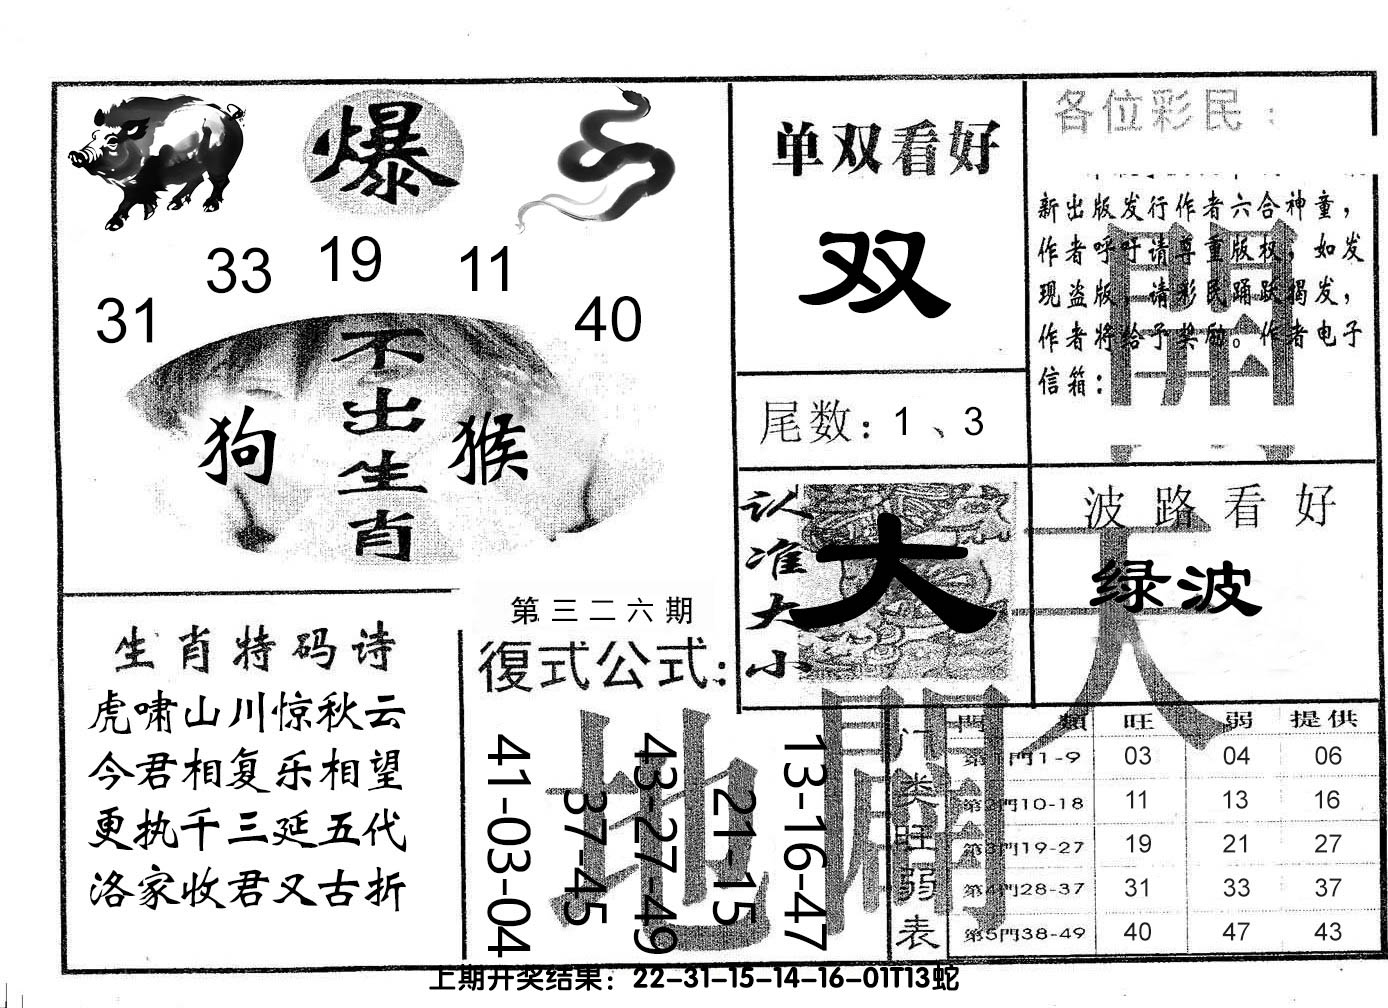 爆
33 19 11
31 40
不出生肖
狗 猴
单双看好
双
尾数：1、3
各位彩民：
新出版发行作者六合神童，
作者呼吁请尊重版权，如发
现盗版，请彩民踊跃揭发，
作者将给予奖励。作者电子
信箱：
開
认准大小
大
波路看好
绿波
天
生肖特码诗
虎啸山川惊秋云
今君相复乐相望
更执千三延五代
洛家收君又古折
第三二六期
復式公式：
41-03-04
37-45
43-27-49
21-15
13-16-47
地
開
门类旺弱表
門類 旺 弱 提供
第1門1-9 03 04 06
第2門10-18 11 13 16
第3門19-27 19 21 27
第4門28-37 31 33 37
第5門38-49 40 47 43
上期开奖结果：22-31-15-14-16-01T13蛇